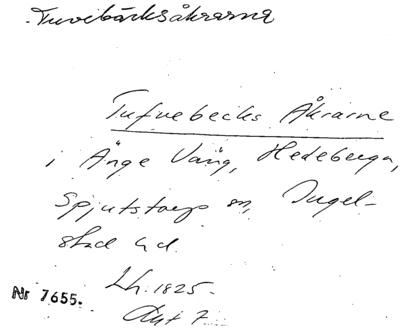 Tuvebäcksåkrarna
Tufvebecks Åkrarne
i Änge Vång, Hedeberga,
Spjutstorps sn, Ingel-
stad hd.
Lh. 1825.
Akt 7
Nr 7655.